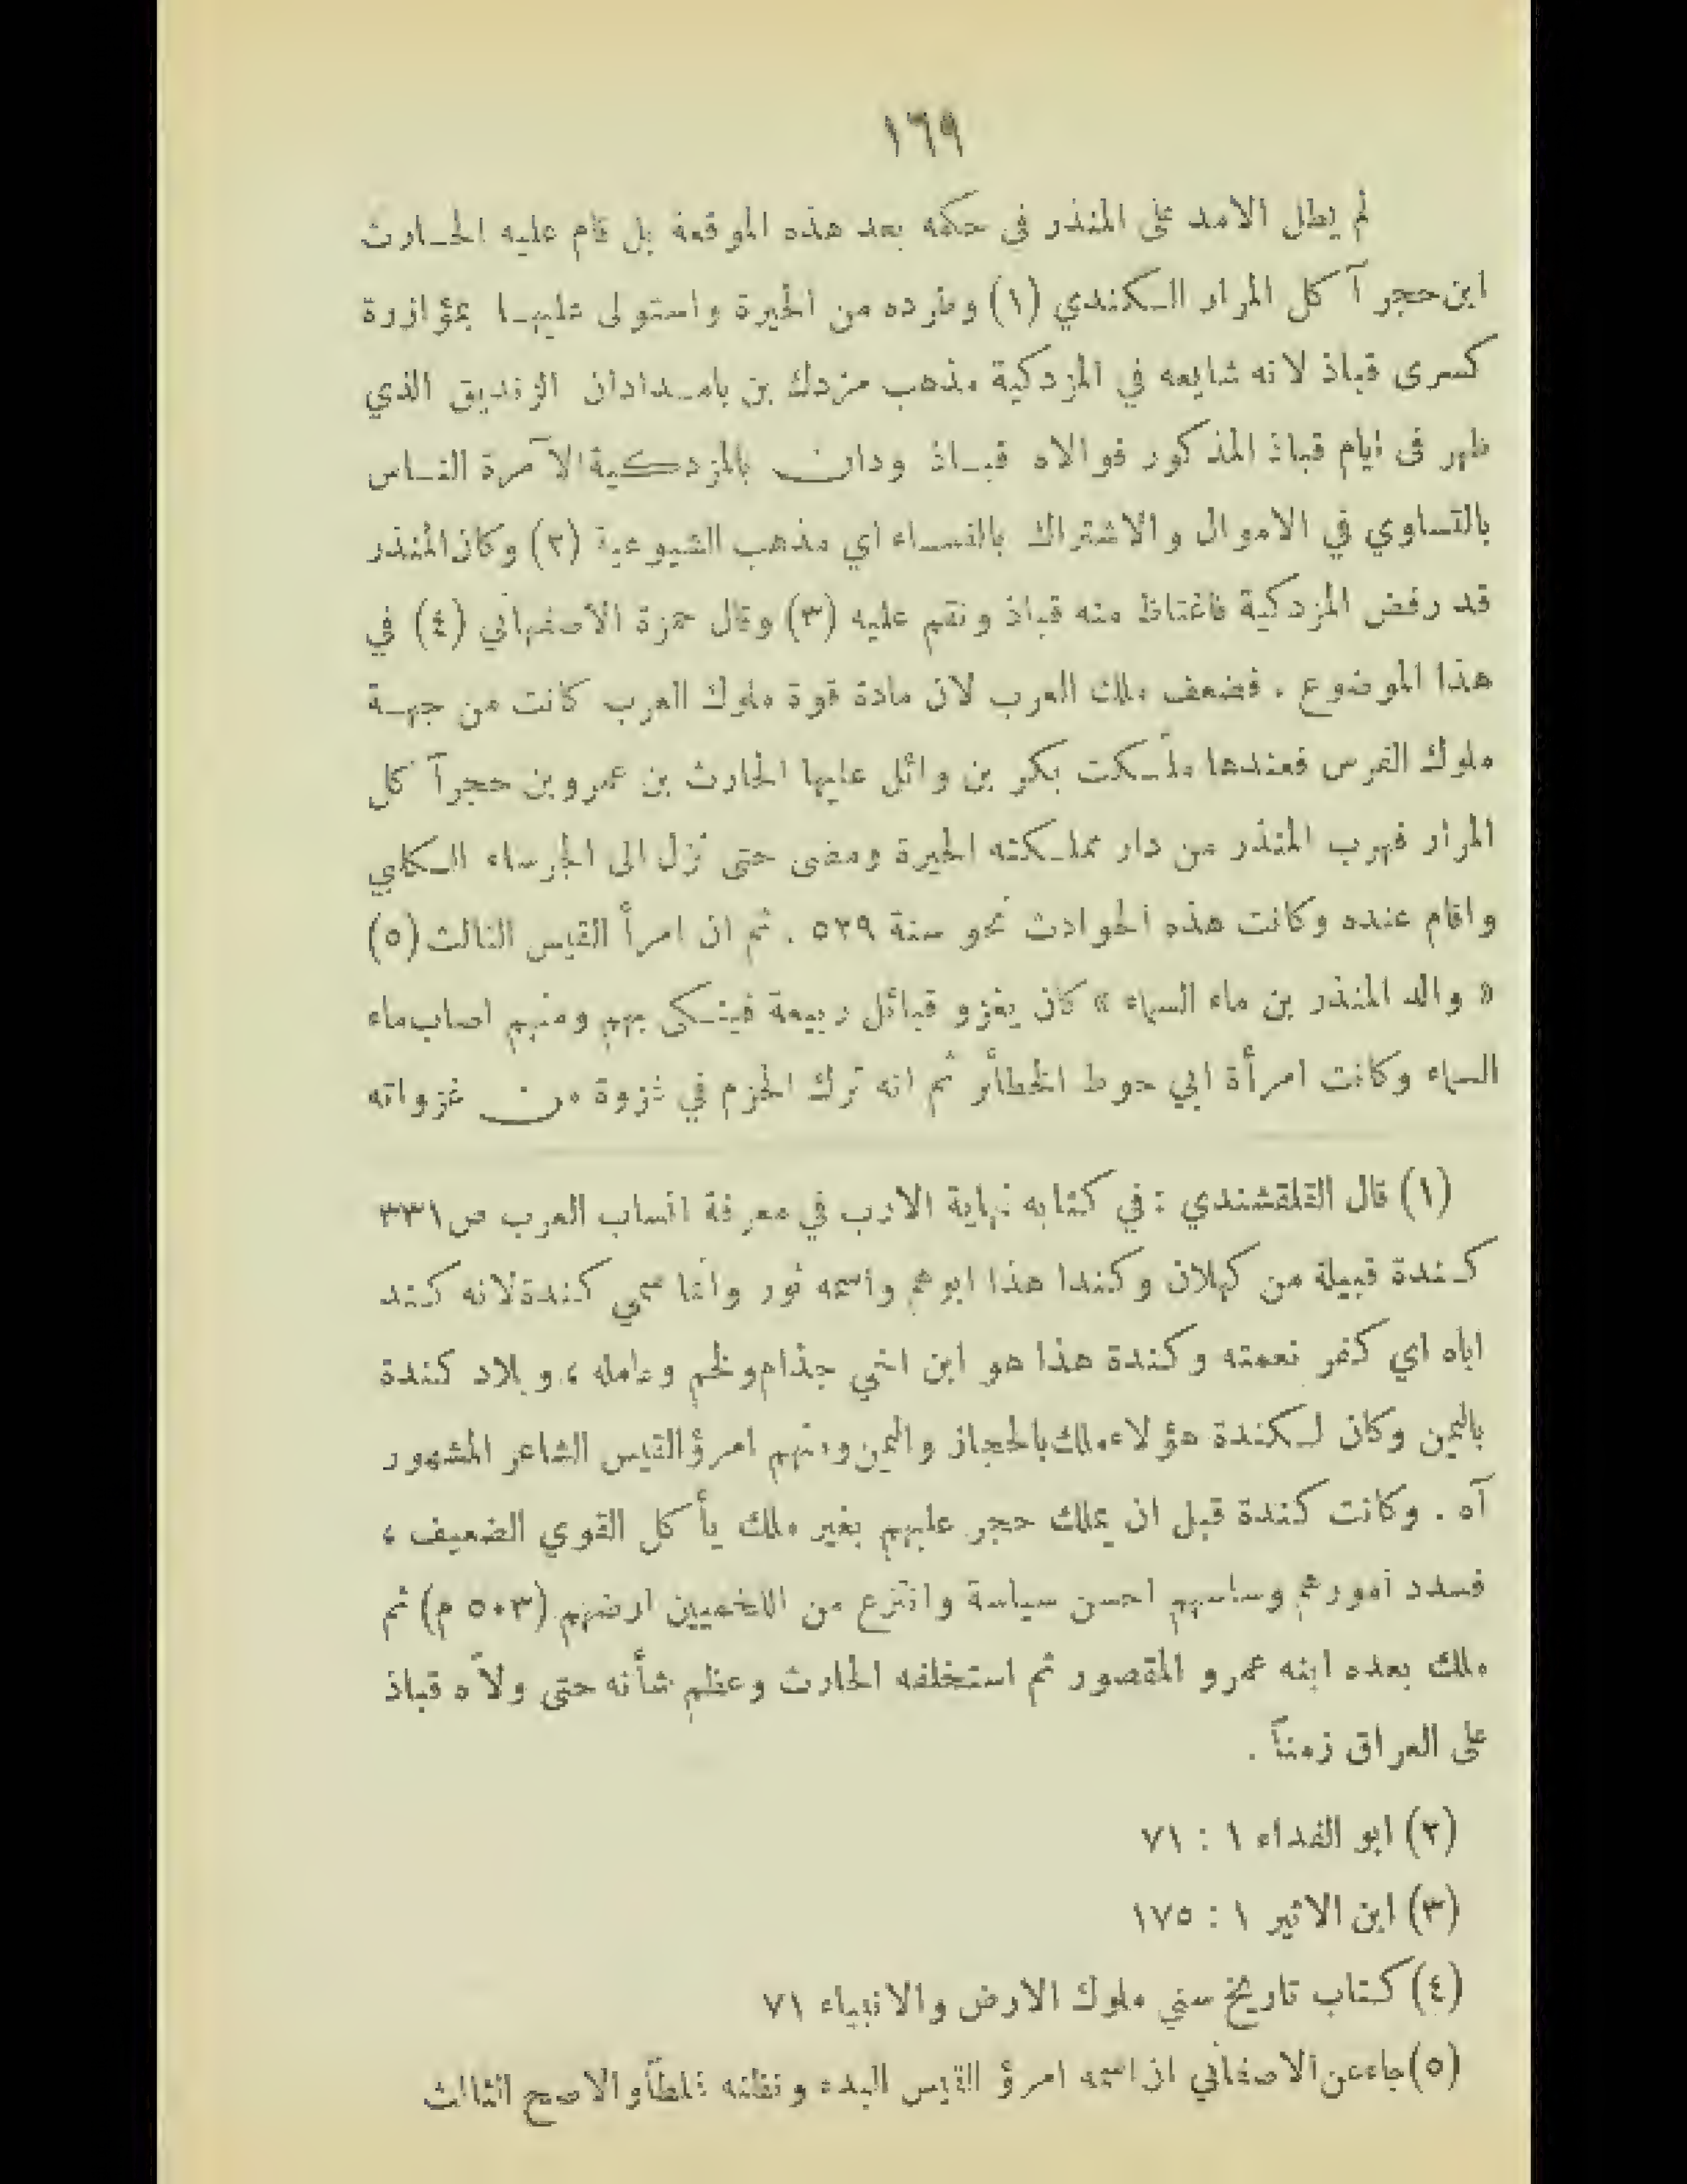 ١٦٩
لم يطل الامد على المنذر فى حكمه بعد هذه الموقعة بل قام عليه الحارث
ابن حجر آكل المرار الكندي (١) وطرده من الحيرة واستولى عليها بمؤازرة
كسرى قباذ لانه شايعه في المزدكية مذهب مزدك بن بامدادان الزنديق الذي
ظهر فى ايام قباذ المذكور فوالاه قباذ ودان بالمزدكية الآمرة الناس
بالتساوي في الاموال والاشتراك بالنساء اي مذهب الشيوعية (٢) وكان المنذر
قد رفض المزدكية فاغتاظ منه قباذ ونقم عليه (٣) وقال حمزة الاصفهاني (٤) في
هذا الموضوع . فضعف ملك العرب لان مادة قوة ملوك العرب كانت من جهة
ملوك الفرس فعندها ملّكت بكر بن وائل عليها الحارث بن عمرو بن حجر آكل
المرار فهرب المنذر من دار مملكته الحيرة ومضى حتى نزل الى الجرساء الكلبي
واقام عنده وكانت هذه الحوادث نحو سنة ٥٢٩ . ثم ان امرأ القيس الثالث (٥)
« والد المنذر بن ماء السماء » كان يغزو قبائل ربيعة فينكى بهم ومنهم اصاب ماء
السماء وكانت امرأة ابي حوط الخطأر ثم انه ترك الحزم في غزوة من غزواته
(١) قال القلقشندي : في كتابه نهاية الارب في معرفة انساب العرب ص ٣٣١
كندة قبيلة من كهلان وكندا هذا ابوهم واسمه ثور وانما سمي كندة لانه كند
اباه اي كفر نعمته وكندة هذا هو ابن اخي جذام ولخم وعامله ، وبلاد كندة
باليمن وكان لكندة هؤلاء ملك بالحجاز واليمن ومنهم امرؤ القيس الشاعر المشهور
آه . وكانت كندة قبل ان يملك حجر عليهم بغير ملك يأكل القوي الضعيف ،
فسدد امورهم وساسهم احسن سياسة وانتزع من اللخميين ارضهم (٥٠٣ م) ثم
ملك بعده ابنه عمرو المقصور ثم استخلفه الحارث وعظم شأنه حتى ولاّه قباذ
على العراق زمناً .
(٢) ابو الفداء ١ : ٧١
(٣) ابن الاثير ١ : ١٧٥
(٤) كتاب تاريخ سني ملوك الارض والانبياء ٧١
(٥) جاء عن الاصفهاني ان اسمه امرؤ القيس البدء ونظنه غلطاً والاصح الثالث